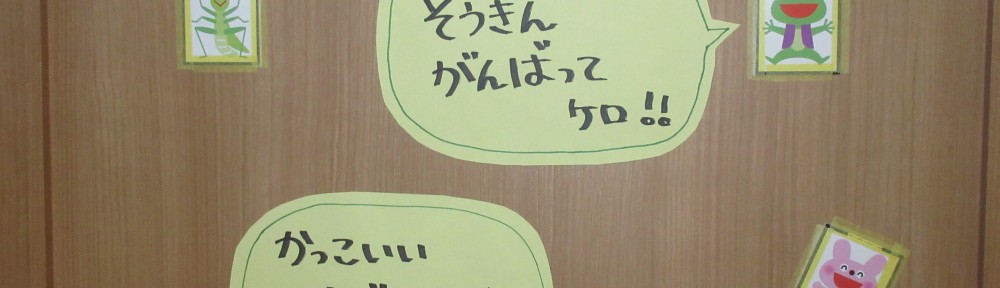 そうきん
がんばって
ケロ!!
かっこいい